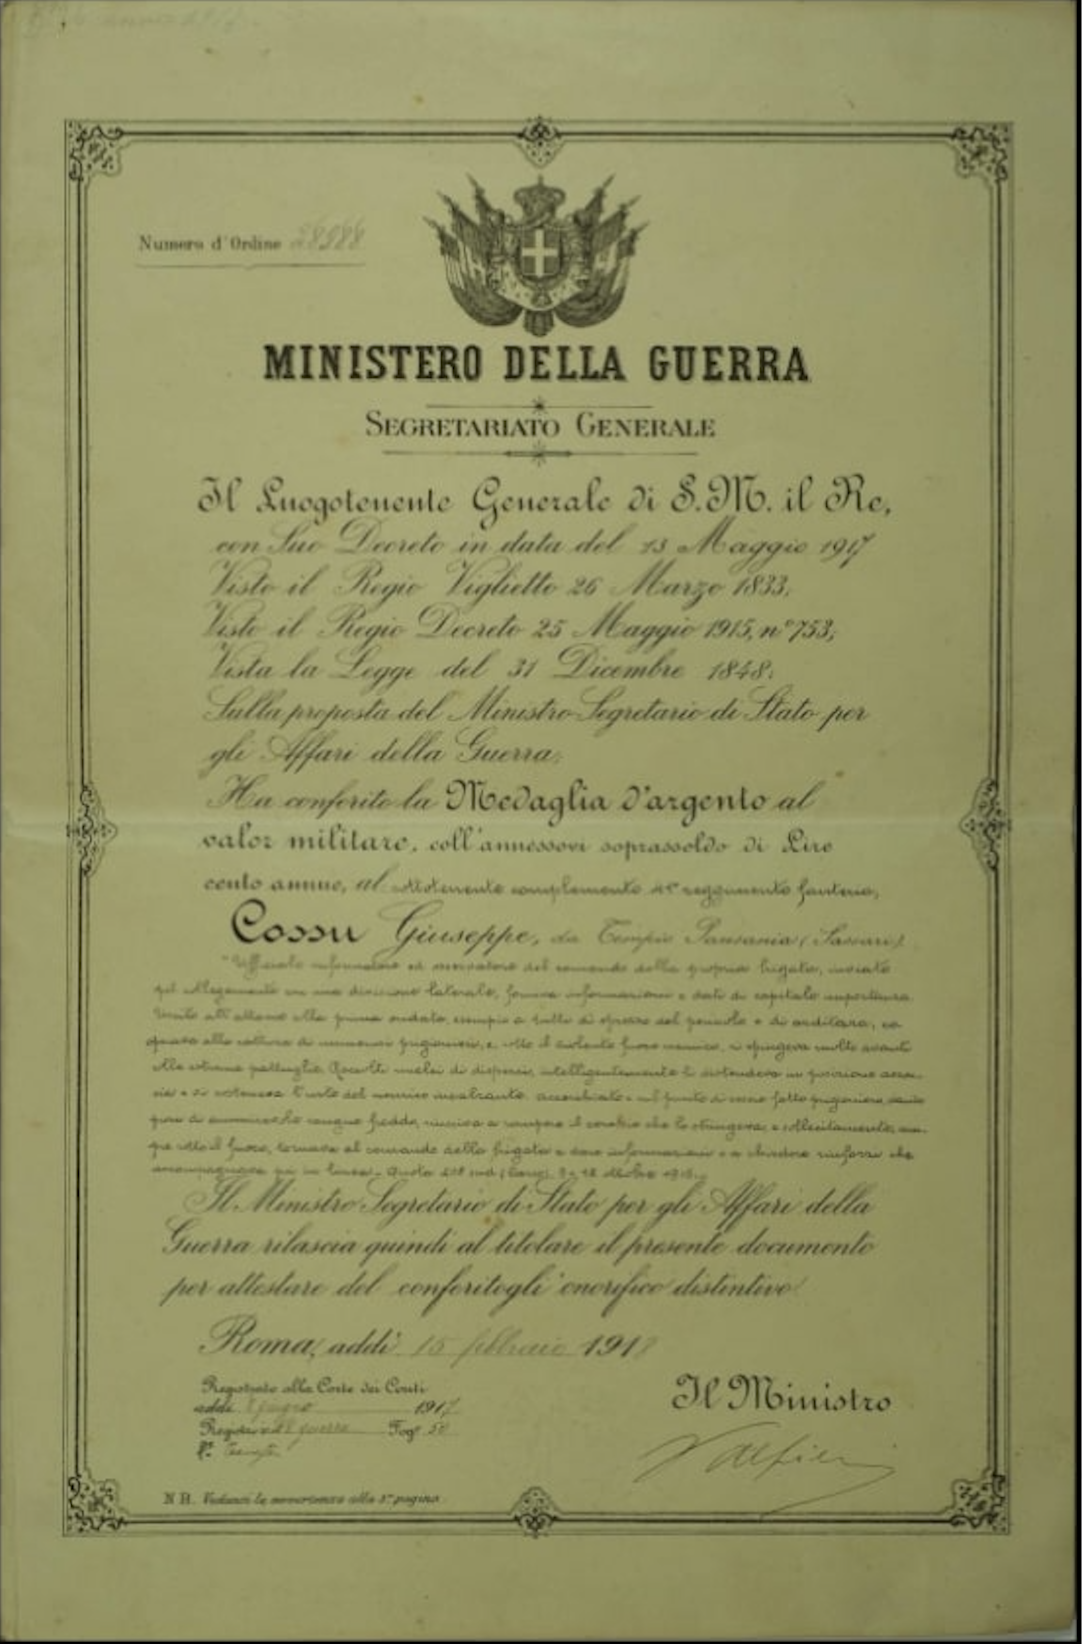 Numero d'Ordine 28988
MINISTERO DELLA GUERRA
SEGRETARIATO GENERALE
Il Luogotenente Generale di S. M. il Re,
con Suo Decreto in data del 13 Maggio 1917
Visto il Regio Viglietto 26 Marzo 1833;
Visto il Regio Decreto 25 Maggio 1915, n° 753;
Vista la Legge del 31 Dicembre 1848;
Sulla proposta del Ministro Segretario di Stato per
gli Affari della Guerra;
Ha conferito la Medaglia d'argento al
valor militare, coll'annessovi soprassoldo di Lire
cento annue, al sottotenente complemento reggimento fanteria,
Cossu Giuseppe, da Tempio Pausania (Sassari)
"Ufficiale informatore ed osservatore del comando della propria brigata, inviato
pel collegamento una divisione laterale, forniva informazioni e dati di capitale importanza.
Unito all'attacco alla prima ondata, esempio a tutti di sprezzo del pericolo e di arditezza, co
operava alla cattura di numerosi prigionieri, e, sotto il violento fuoco nemico, si spingeva molto avanti
alle estreme pattuglie. Raccolti nuclei di dispersi, intelligentemente li distendeva in posizione
e sosteneva l'urto del nemico incalzante. accerchiato e sul punto di esser fatto prigioniero,
di sangue freddo, riusciva a rompere il cerchio che lo stringeva, e sollecitamente,
pre sotto il fuoco, tornava al comando della brigata a dare informazioni e a chiedere rinforzi che
accompagnava in linea. - Quota 208 sud (Carso) ottobre 1916."
Il Ministro Segretario di Stato per gli Affari della
Guerra rilascia quindi al titolare il presente documento
per attestare del conferitogli onorifico distintivo.
Roma, addì 15 febbraio 1918
Registrato alla Corte dei Conti
addì 8 giugno 1917
guerra Fog° 50
Il Ministro
Valfieri
N B. Vedansi le avvertenze alla 3ª pagina